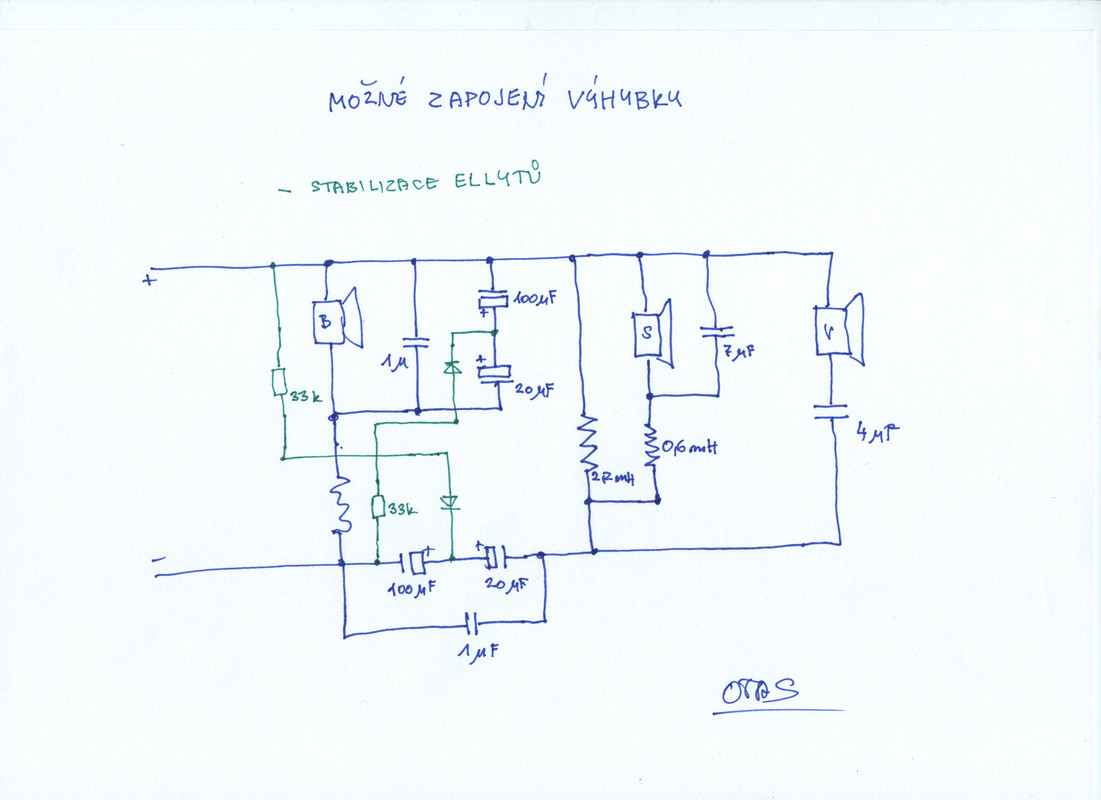 MOŽNÉ ZAPOJENÍ VÝHYBKY
- STABILIZACE ELLYTŮ
+
B
1µ
+
100µF
+
20µF
S
7µF
V
4µF
33k
0,6mH
22mH
33k
-
+
100µF
+
20µF
1µF